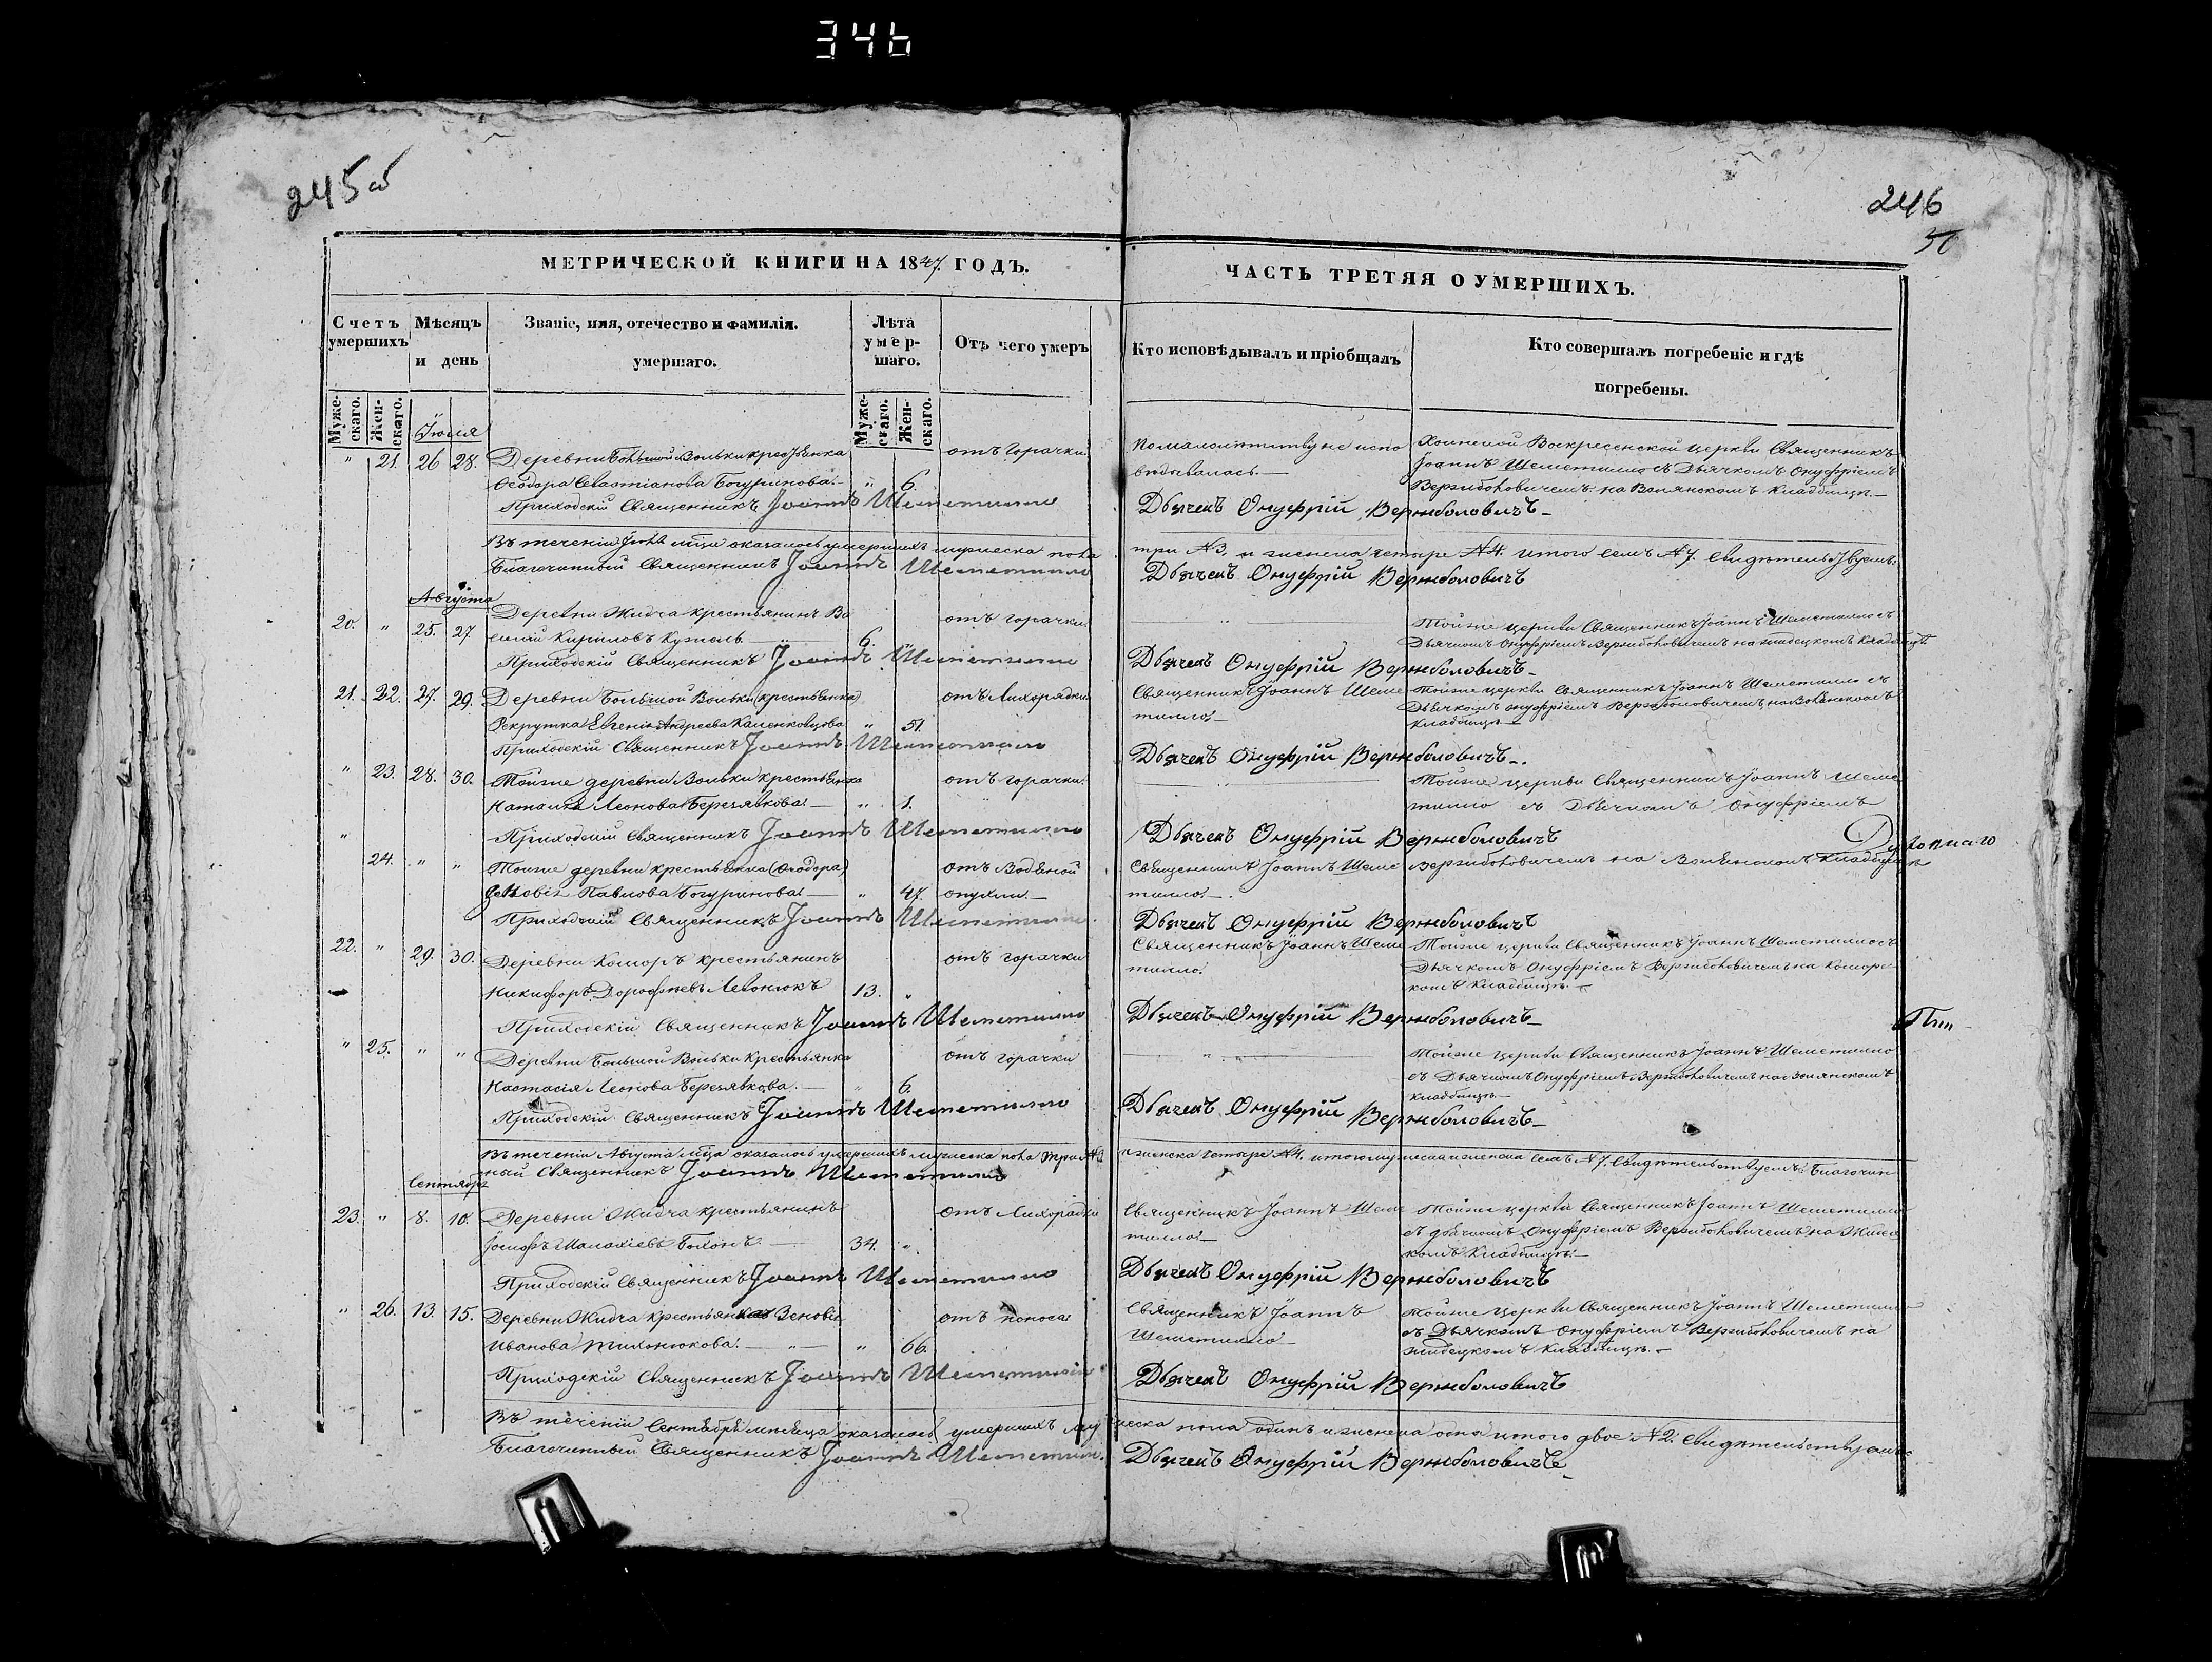 346
245 об
246
50
МЕТРИЧЕСКОЙ КНИГИ НА 1847. ГОДЪ.
ЧАСТЬ ТРЕТЯЯ О УМЕРШИХЪ.
Счетъ умершихъ
Мѣсяцъ и день
Званіе, имя, отечество и фамилія. умершаго.
Лѣта умер-шаго.
Отъ чего умеръ
Кто исповѣдывалъ и пріобщалъ
Кто совершалъ погребеніе и гдѣ погребены.
Муже-скаго.
Жен-скаго.
Муже-скаго.
Жен-скаго.
Іюля
" 21. 26 28. Деревни Большой Вольки крестьянка отъ горачки
Ѳеодора Севастіанова Богуринова. " 6.
По малолѣтству не испо
вѣдывалась.
Воскресенской церкви Священникъ
Іоаннъ Шеметилло съ Дьячкомъ Онуфріемъ
Вержболовичемъ на Волянскомъ кладбищѣ.
Приходскій Священникъ Іоаннъ Шеметилло
Дьячекъ Онуфрій Вержболовичъ
Въ теченіи Іюля мѣца оказалось умершихъ мужеска пола три №3. и женска четыре №4. итого семь №7. Свидѣтельствуемъ:
Благочинный Священникъ Іоаннъ Шеметилло
Дьячекъ Онуфрій Вержболовичъ
Августа
20. " 25. 27. Деревни Жидча крестьянинъ Ва отъ горачки
силій Кириловъ Кузмель 6. "
Тойже церкви Священникъ Іоаннъ Шеметилло съ
Дьячкомъ Онуфріемъ Вержболовичемъ на жидецкомъ кладбищѣ
Приходскій Священникъ Іоаннъ Шеметилло
Дьячекъ Онуфрій Вержболовичъ
21. 22. 27. 29. Деревни Большой Вольки (крестьянка) отъ Лихорадки
Рекрутка Евгенія Андреева " 51.
Священникъ Іоаннъ Шеме
тилло.
Тойже церкви Священникъ Іоаннъ Шеметилло съ
Дьячкомъ Онуфріемъ Вержболовичемъ на Волянскомъ
кладбищѣ
Приходскій Священникъ Іоаннъ Шеметилло
Дьячекъ Онуфрій Вержболовичъ.
" 23. 28. 30. Тойже деревни Вольки крестьянка отъ горачки.
Наталія Леонова Березявкова. " 1.
Тойже церкви Священникъ Іоаннъ Шеме
тилло съ Дьячкомъ Онуфріемъ
Приходскій Священникъ Іоаннъ Шеметилло
Дьячекъ Онуфрій Вержболовичъ
Духовнаго
" 24. " " Тойже деревни крестьянка (Ѳеодора) отъ Водяной
Зеновія Павлова Богуринова. " 47. опухли.
Священникъ Іоаннъ Шеме
тилло.
Вержболовичемъ на Волянскомъ кладбищѣ
Приходскій Священникъ Іоаннъ Шеметилло.
Дьячекъ Онуфрій Вержболовичъ
22. " 29. 30. Деревни Коморъ крестьянинъ отъ горачки
Никифоръ Дорофѣевъ Левонюкъ 13. "
Священникъ Іоаннъ Шеме
тилло.
Тойже церкви Священникъ Іоаннъ Шеметилло съ
Дьячкомъ Онуфріемъ Вержболовичемъ на Коморс
комъ кладбищѣ.
Приходскій Священникъ Іоаннъ Шеметилло
Дьячекъ Онуфрій Вержболовичъ
" 25. " " Деревни Большой Вольки крестьянка отъ горачки
Настасія Леонова Березявкова. " 6.
Тойже церкви Священникъ Іоаннъ Шеметилло
съ Дьячкомъ Онуфріемъ Вержболовичемъ на Волянскомъ
кладбищѣ.
Приходскій Священникъ Іоаннъ Шеметилло
Дьячекъ Онуфрій Вержболовичъ
Въ теченіи Августа мѣца оказалось умершихъ мужеска пола три №3. и женска четыре №4. итого мужеска и женска семь №7. Свидѣтельствуемъ: Благочин
ный Священникъ Іоаннъ Шеметилло
Сентября
23. " 8. 10. Деревни Жидча крестьянинъ отъ Лихорадки
Іосифъ Малахіевъ 34. "
Священникъ Іоаннъ Шеме
тилло.
Тойже церкви Священникъ Іоаннъ Шеметилло
съ дьячкомъ Онуфріемъ Вержболовичемъ на Жидец
комъ кладбищѣ.
Приходскій Священникъ Іоаннъ Шеметилло
Дьячекъ Онуфрій Вержболовичъ
" 26. 13. 15. Деревни Жидча крестьянка Зеновія отъ поноса
Иванова Тихонюкова. " 66.
Священникъ Іоаннъ
Шеметилло
Тойже церкви Священникъ Іоаннъ Шеметилло
съ Дьячкомъ Онуфріемъ Вержболовичемъ на
жидецкомъ кладбищѣ.
Приходскій Священникъ Іоаннъ Шеметилло
Дьячекъ Онуфрій Вержболовичъ
Въ теченіи Сентября мѣсяца оказалось умершихъ мужеска пола одинъ и женска одна итого двое №2. Свидѣтельствуемъ:
Благочинный Священникъ Іоаннъ Шеметилло.
Дьячекъ Онуфрій Вержболовичъ